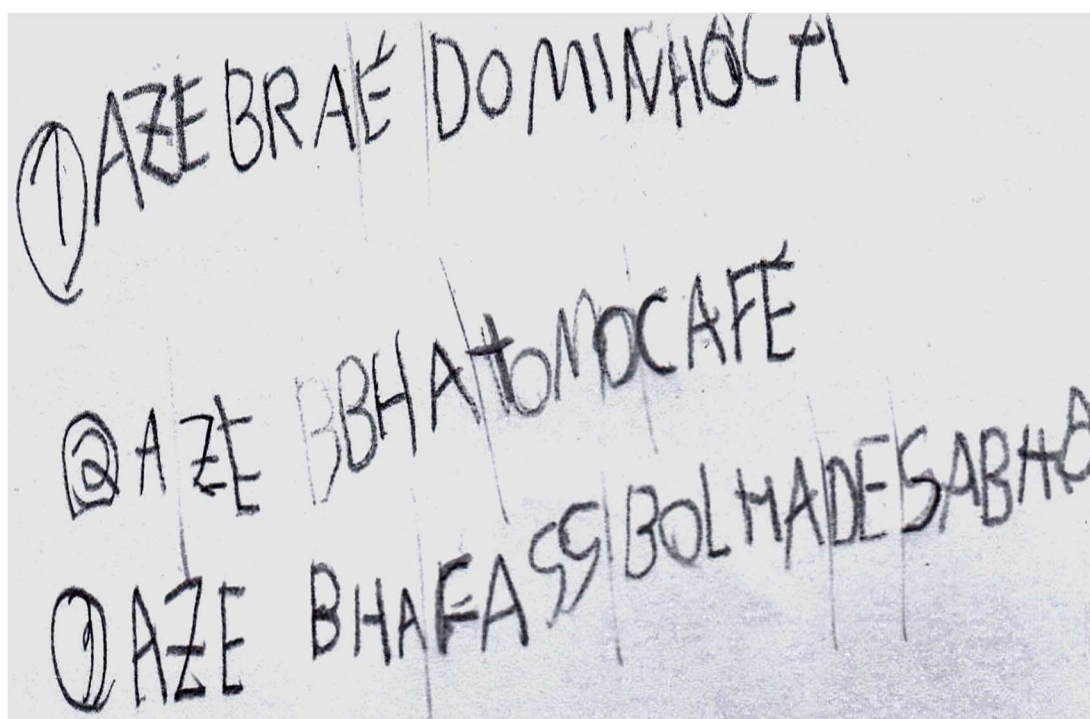 ① AZEBRAÉ DOMINHOCA
② AZE BBHATOMOCAFÉ
① AZE BHAFASSBOLHADESABHO